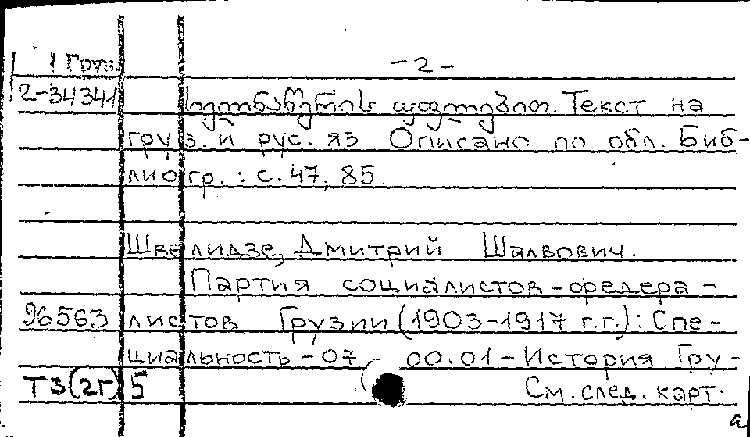 1 Груз. - 2 -
2-34341 ხელნაწერის უფლებით. Текст на
груз. и рус. яз Описано по обл. Биб-
лиогр.: с. 47, 85.
Швелидзе, Дмитрий Шалвович.
Партия социалистов-федера-
96563 листов Грузии (1903-1917 г.г.): Спе-
циальность - 07 00.01 - История Гру-
Т3(2Г)5 См. след. карт.
а